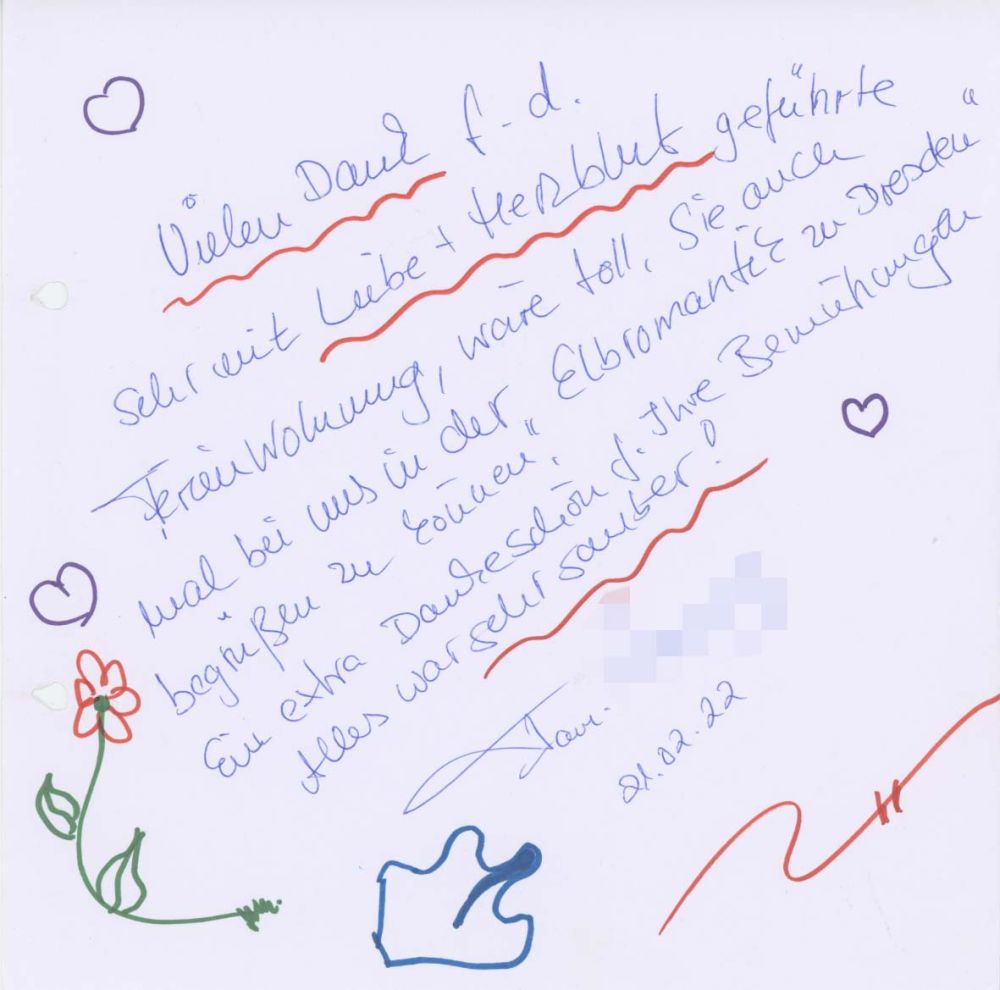 Vielen Dank f. d.
sehr mit Liebe + Herzblut geführte
Ferienwohnung, wäre toll, Sie auch
mal bei uns in der „Elbromantik zu Dresden“
begrüßen zu können.
Ein extra Dankeschön f. Ihre Bemühungen
Alles war sehr sauber!
Fam.
21.02.22